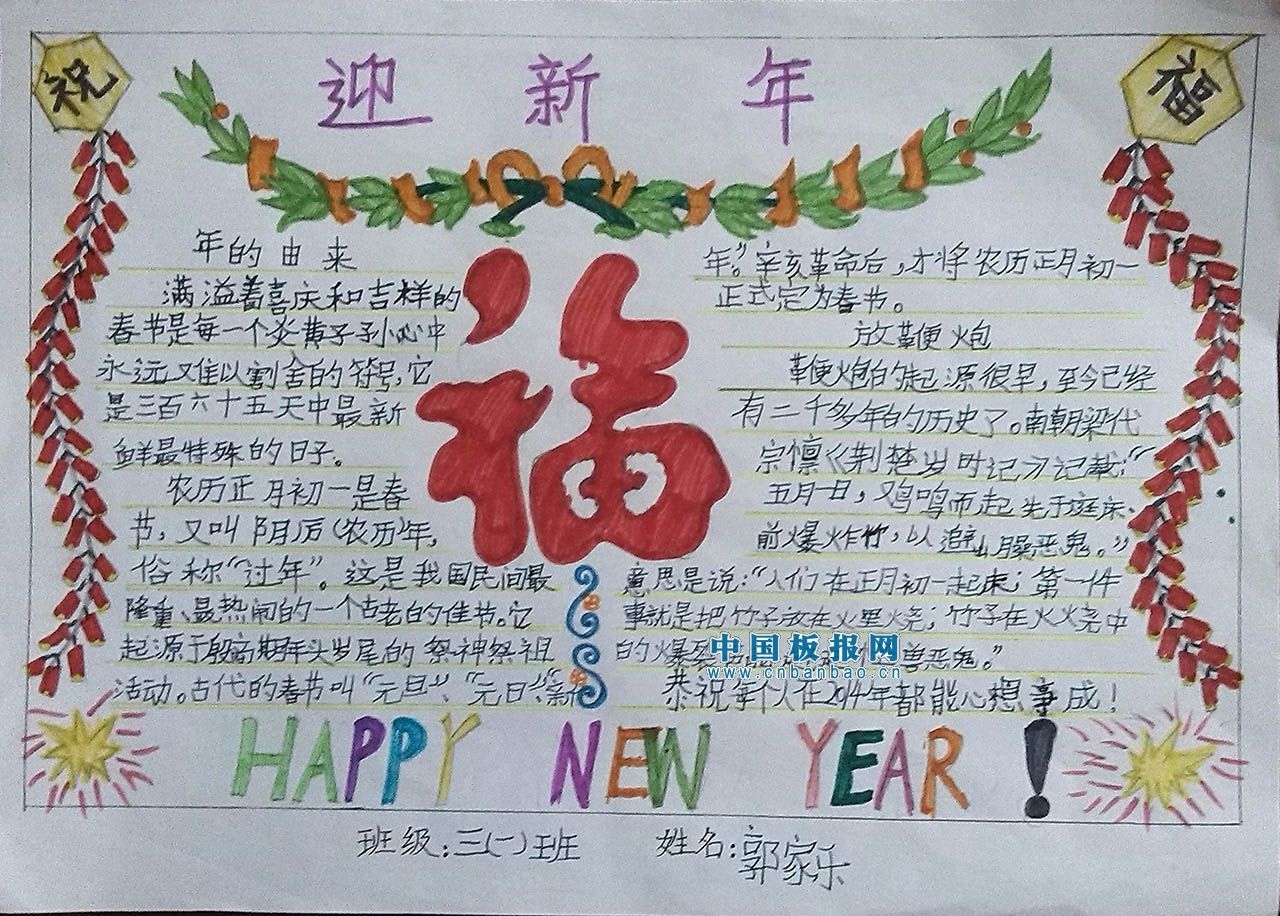 祝
福
迎新年
年的由来
满溢着喜庆和吉样的
春节是每一个炎黄子子孙心中
永远又难以割舍的符号,它
是三百六十五天中最新
鲜最特殊的日子。
农历正月初一是春
节,又叫阴历(农历)年,
俗称“过年”。这是我国民间最
隆重、最热闹的一个古老的佳节。它
起源于殷商期年头岁尾的祭神祭祖
活动。古代的春节叫“元旦”、“元日”、“新
福
年”。辛亥革命后,才将农历正月初一
正式定为春节。
放鞭炮
鞭炮的起源很早,至今已经
有二千多年的历史了。南朝梁代
宗懔《荆楚岁时记》记载:“
五月一日,又鸡鸣而起先于庭床、
前爆炸竹,以避山臊恶鬼。”
意思是说:“人们在正月初一起床;第一件
事就是把竹子放在火里烧;竹子在火火烧中
的爆
恶鬼。”
恭祝年们在2014年都能心想事成!
中国板报网
www.cnbanbao.cn
HAPPY NEW YEAR!
班级:三(一)班 姓名:郭家乐